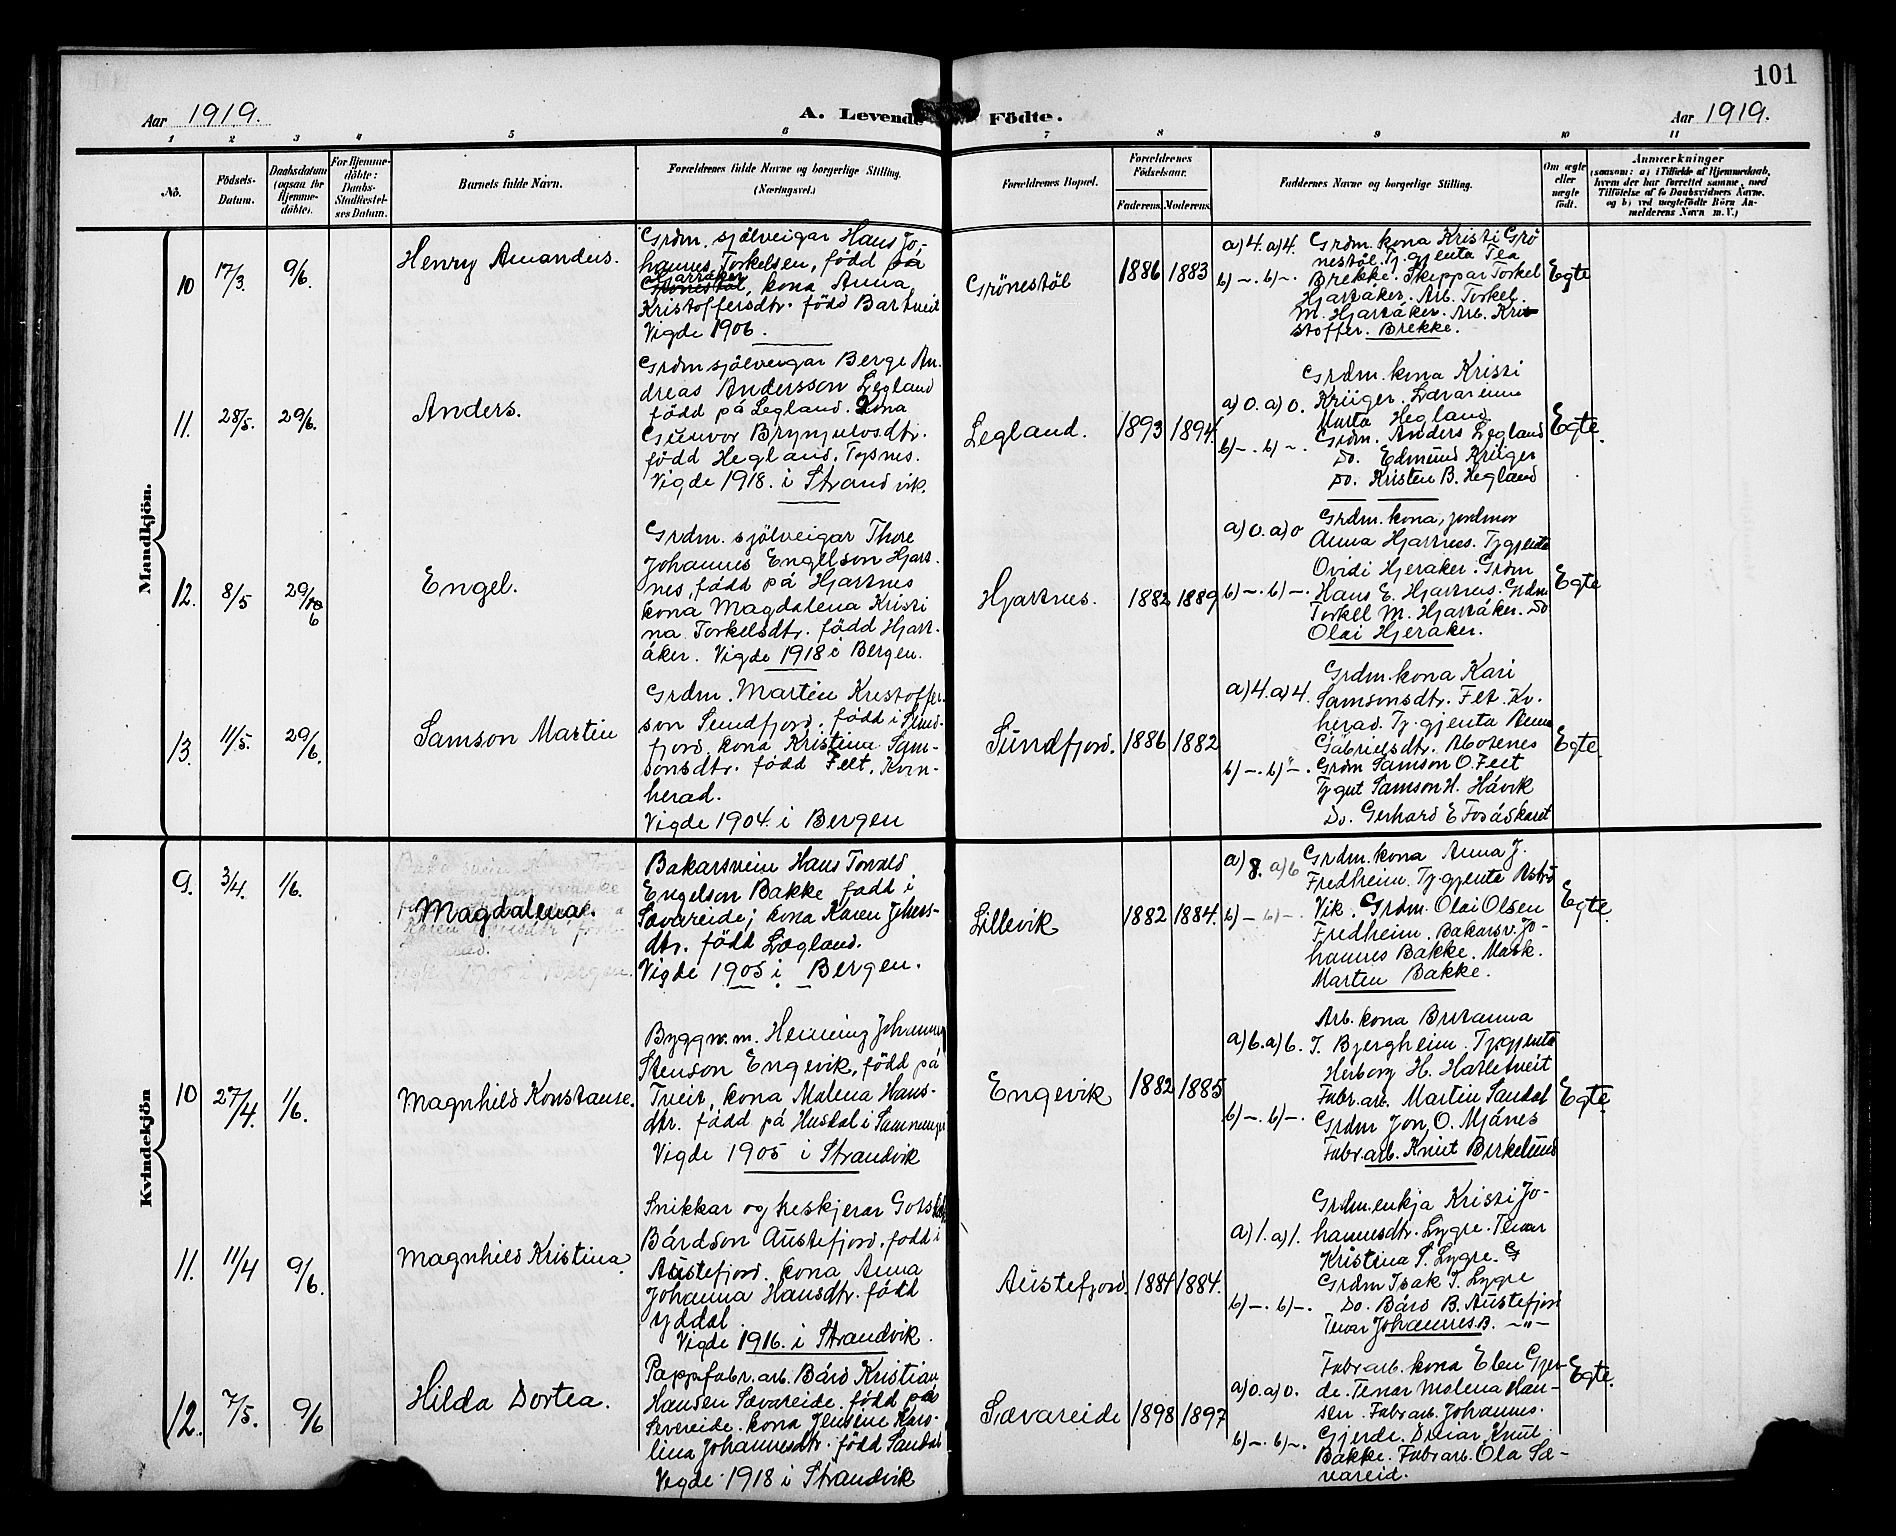 101
Aar 1919.
A. Levende Födte.
Aar 1919.
1 2 3 4 5 6 7 8 9 10 11
No.
Födsels-
Datum.
Daabsdatum
(ogsaa for
Hjemme-
döbte).
For Hjemme-
döbte:
Daabs-
Stadfæstel-
ses Datum.
Barnets fulde Navn.
Forældrenes fulde Navne og borgerlige Stilling.
(Næringsvei.)
Forældrenes Bopæl.
Forældrenes
Födselsaar.
Faderens. Moderens.
Faddernes Navne og borgerlige Stilling.
Om ægte
eller
uægte
födt.
Anmærkninger
(saasom: a) i Tilfælde af Hjemmedaab,
hvem der har forrettet samme, med
Tilföielse af to Daabsvidners Navne,
og b) ved uægtefödte Börn An-
melderens Navn m. V.)
Mandkjön.
10 17/3 9/6.
Henry Amandus.
Grdm. sjölveigar Hans Jo-
hannes Torkelsen, född på
Hjartåker
Grönestöl, kona Anna
Kristoffersdtr. född Bartveit
Vigde 1906.
Grönestöl
1886 1883
a) 4. a) 4.
b) -. b) -.
Grdm. kona Kristi Grö
nestöl. Tj. gjenta Tea
Brekke. Skippar Torkel
Hjartåker. Arb. Torkel.
M. Hjartåker. Arb. Kri
stoffer. Brekke.
Egte
11. 28/5. 29/6.
Anders.
Grdm sjölveigar Berge An-
dreas Andersson Legland
född på Legland. Kona
Gunvor Brynjulvsdtr.
född Hegland, Tysnes.
Vigde 1918. i Strandvik.
Legland.
1893 1894.
a) 0. a) 0.
b) -. b) -.
Grdm. kona Kristi
Krüger. Lærarinna
Marta Hegland
Grdm. Anders Legland
Do. Edmund Krüger
Do. Kristen B. Hegland
Egte.
12. 8/5 29/6
Engel.
Grdm. sjölveigar Thore
Johannes Engelson Hjart-
nes, född på Hjartnes
kona Magdalena Kristi
na Torkelsdtr. född Hjart-
åker. Vigde 1918 i Bergen.
Hjartnes.
1882 1889
a) 0. a) 0
b) -. b) -.
Grdm. kona, jordmor
Anna Hjartnes. Tj gjenta
Ovidi Hjeraker. Grdm
Hans E. Hjartnes. Grdm
Torkel M. Hjartåker. Do
Olai Hjeraker.
Egte
13. 11/5. 29/6.
Samson Martin
Grdm. Martin Kristoffer-
son Sundfjord. född i Sund-
fjord, kona Kristina Sam-
sonsdtr. född Felt, Kvin-
herad.
Vigde 1904. i Bergen
Sundfjord.
1886 1882
a) 4. a) 4.
b) -. b) -.
Grdm. kona Kari
Samsonsdtr. Felt Kv.
herad. Tj. gjenta Anna
Gabrielsdtr.
Grdm Samson O. Felt
Tj gut Samson H. Håvik
Do. Gerhard E
Egte.
Kvindekjön
9. 3/4. 1/6.
Magdalena.
Bakarsvein Hans Torvald
Engelson Bakke, född i
Sævareide; kona Karen Johans-
dtr. född Lægland.
Vigde 1905 i Bergen.
Lillevik
1882 1884.
a) 8. a) 6
b) - b) -
Grdm. kona Anna J.
Fredheim. Tj. gjenta
Vik. Grdm. Olai Olsen
Fredheim. Bakarsv. Jo-
hannes Bakke. Mask.
Marten Bakke.
Egte.
10 27/4. 1/6.
Magnhild Konstanse.
Byggm. m. Henning Johannes
Stenson Engevik, född på
Tveit, kona Malena Hans-
dtr. född på Husdal i Samnanger
Vigde 1905 i Strandvik
Engevik
1882 1885
a) 6. a) 6.
b) -. b) -.
Arb. kona Britanna
T. Bjergheim. Tj. gjenta
Herborg H. Hatletveit
Fabr. arb. Martin Sandal
Grdm Jon. O. Mjånes
Fabr. arb. Knut Birkelund
Egte.
11. 11/4 9/6.
Magnhild Kristina.
Snikkar og treskjerar Gotskalk
Bårdson Austefjord. född i
Austefjord. kona Anna
Johanna Hansdtr. född
Yddal.
Vigde 1916. i Strandvik.
Austefjord.
1884 1884.
a) 1. a) 1.
b) -. b) -.
Grdm. enkja Kristi Jo-
hannesdtr. Lygre. Tenar
Kristina S. Lygre. G
Grdm Isak I. Lygre
Do. Bård B. Austefjord
Tenar Johannes B. -"-
12. 7/5. 9/6
Hilda Dortea.
Pappfabr. arb. Bård Kristian
Hansen Sævareide, född på
Severeide. kona Jensine Karo-
lina Johannesdtr. född Sandal
Vigde 1918 i Strandvik
Sævareide
1898 1897
a) 0. a) 0.
b) -. b) -.
Fabr arb. kona Elen Gjer-
de. Tenar Malena Han-
sen. Fabr arb. Johannes.
Gjerde. Knut.
Bakke. Fabr arb. Ola Sæ-
vareid.
Egte.